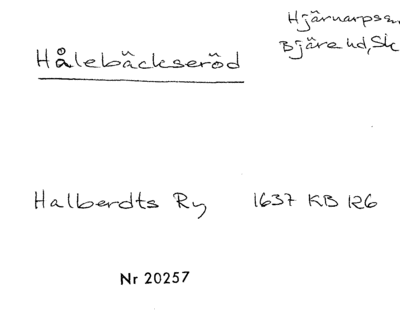 Hjärnarpssn
Bjäre hd, Sk
Hålebäckseröd
Halberdts Ry 1637 KB 126
Nr 20257